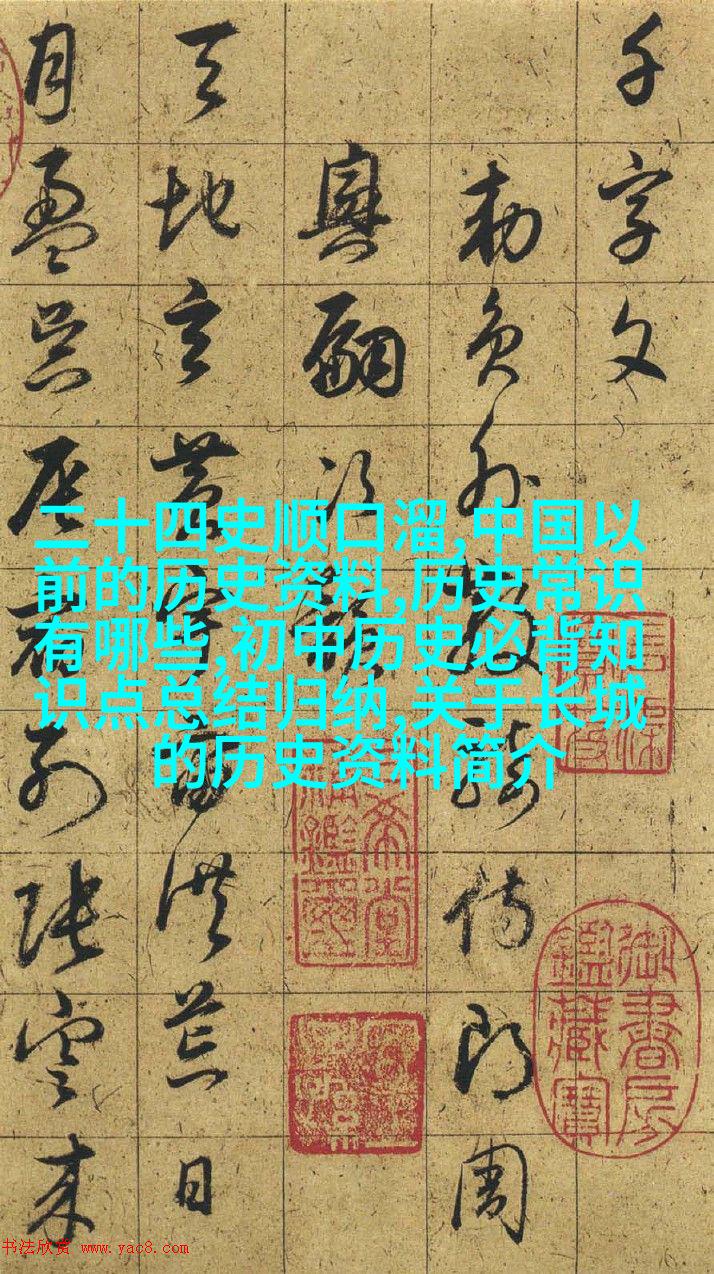 千字文
勅員外散騎侍郎周
興嗣次韻
天地玄黄宇宙洪荒日
月盈昃辰宿列張寒来
二十四史顺口溜,中国以
前的历史资料,历史常识
有哪些,初中历史必背知
识点总结归纳,关于长城
的历史资料简介
御書房
鑑藏寶
三希堂
精鑑璽
书法欣赏 www.yac8.com